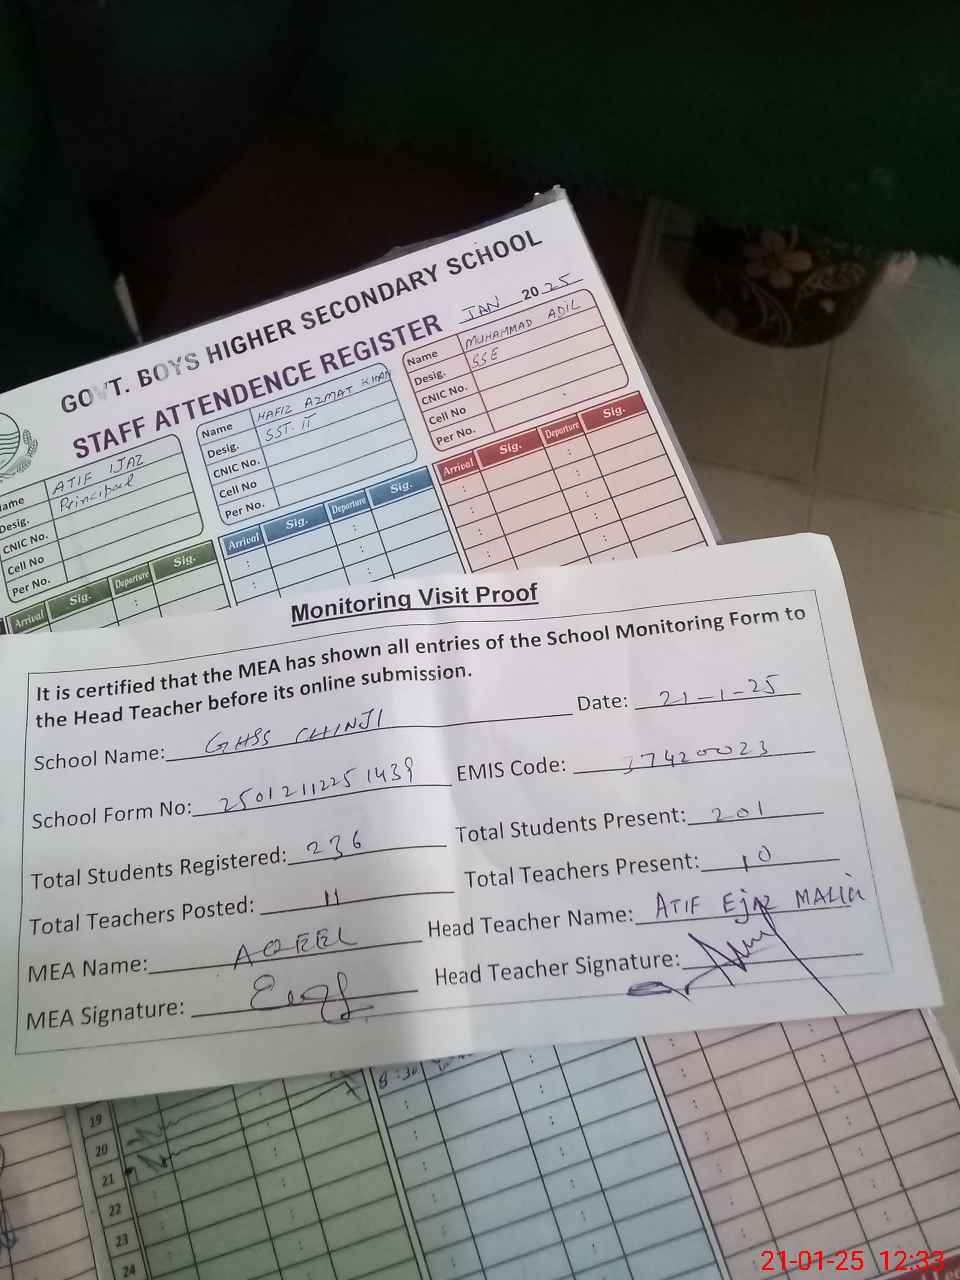 GOVT. BOYS HIGHER SECONDARY SCHOOL
STAFF ATTENDENCE REGISTER JAN 2025
Name ATIF IJAZ
Desig. Principal
CNIC No.
Cell No
Per No.
Arrival Sig. Departure Sig.
Name HAFIZ AZMAT KHAN
Desig. SST-II
CNIC No.
Cell No
Per No.
Arrival Sig. Departure Sig.
Name MUHAMMAD ADIL
Desig. SSE
CNIC No.
Cell No
Per No.
Arrival Sig. Departure Sig.
Monitoring Visit Proof
It is certified that the MEA has shown all entries of the School Monitoring Form to
the Head Teacher before its online submission.
School Name: GHSS CHINJI Date: 21-1-25
School Form No: 25012112251439 EMIS Code: 37420023
Total Students Registered: 236 Total Students Present: 201
Total Teachers Posted: 11 Total Teachers Present: 10
MEA Name: AQEEL Head Teacher Name: ATIF Ejaz MALIK
MEA Signature: Head Teacher Signature:
8:30
19
20
21
22
23
24
21-01-25 12:33